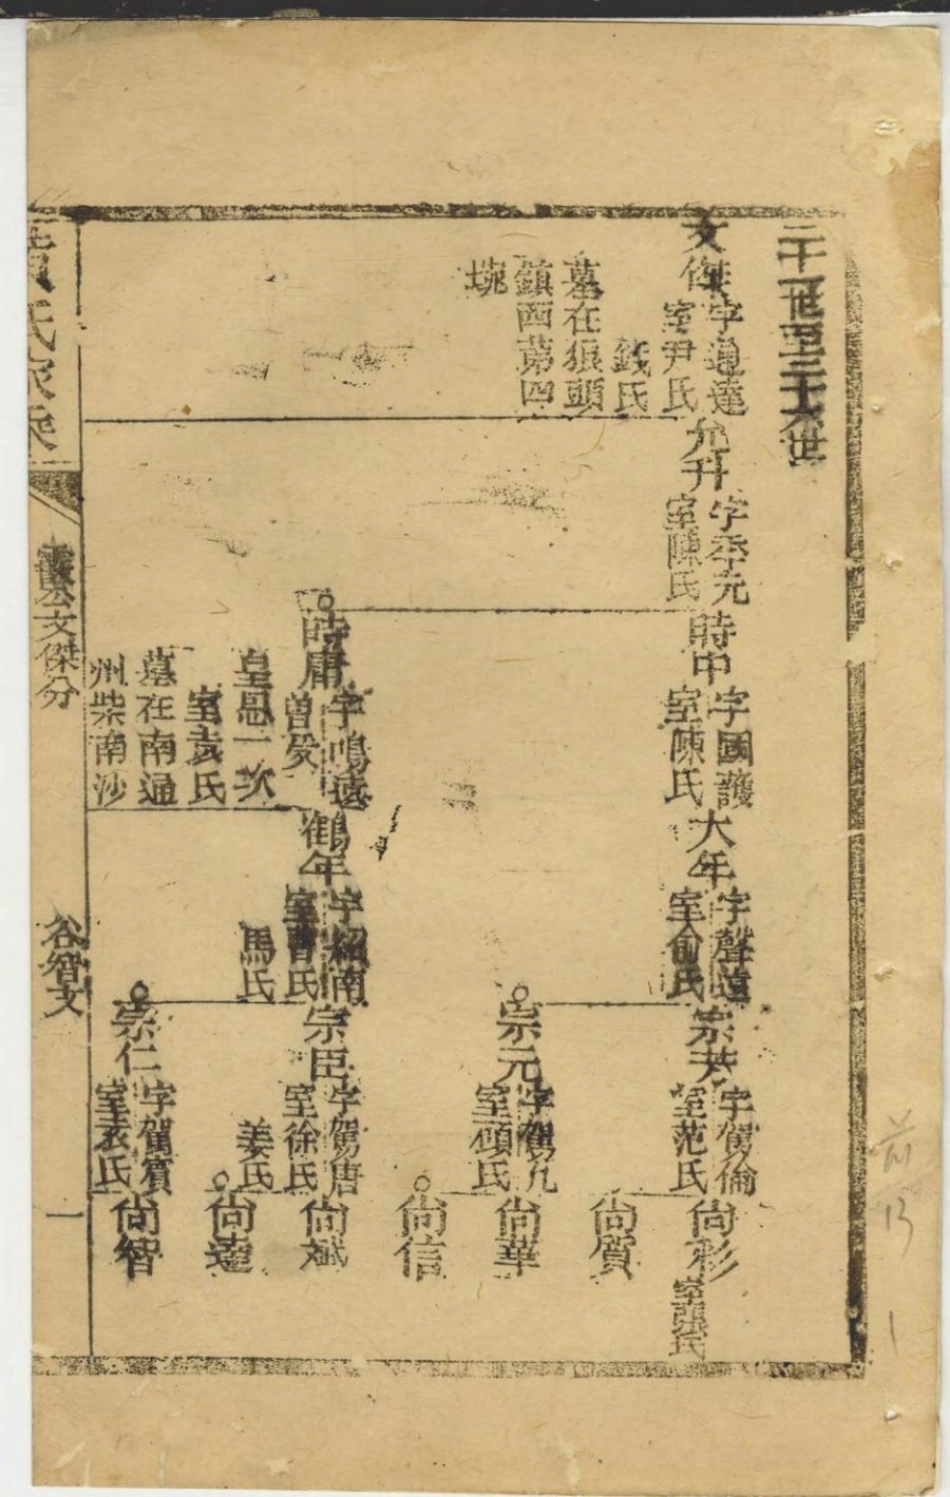 二十一世至二十六世
文傑
字通達
室尹氏
錢氏
墓在狼頭
鎮西第四
埦
允升
字季元
室陳氏
時中
字國護
室陳氏
時庸
字鳴遠
曾癹
皇恩一次
室袁氏
墓在南通
州柴南沙
大年
字聲遠
室俞氏
鶴年
字紹南
室曹氏
馬氏
宗共
字駕倫
室范氏
宗元
字駕九
室顧氏
宗臣
字駕唐
室徐氏
姜氏
宗仁
字駕賓
室袁氏
尚彩
室張氏
尚質
尚華
尚信
尚斌
尚達
尚智
氏家乘
公文傑分
谷智文
一